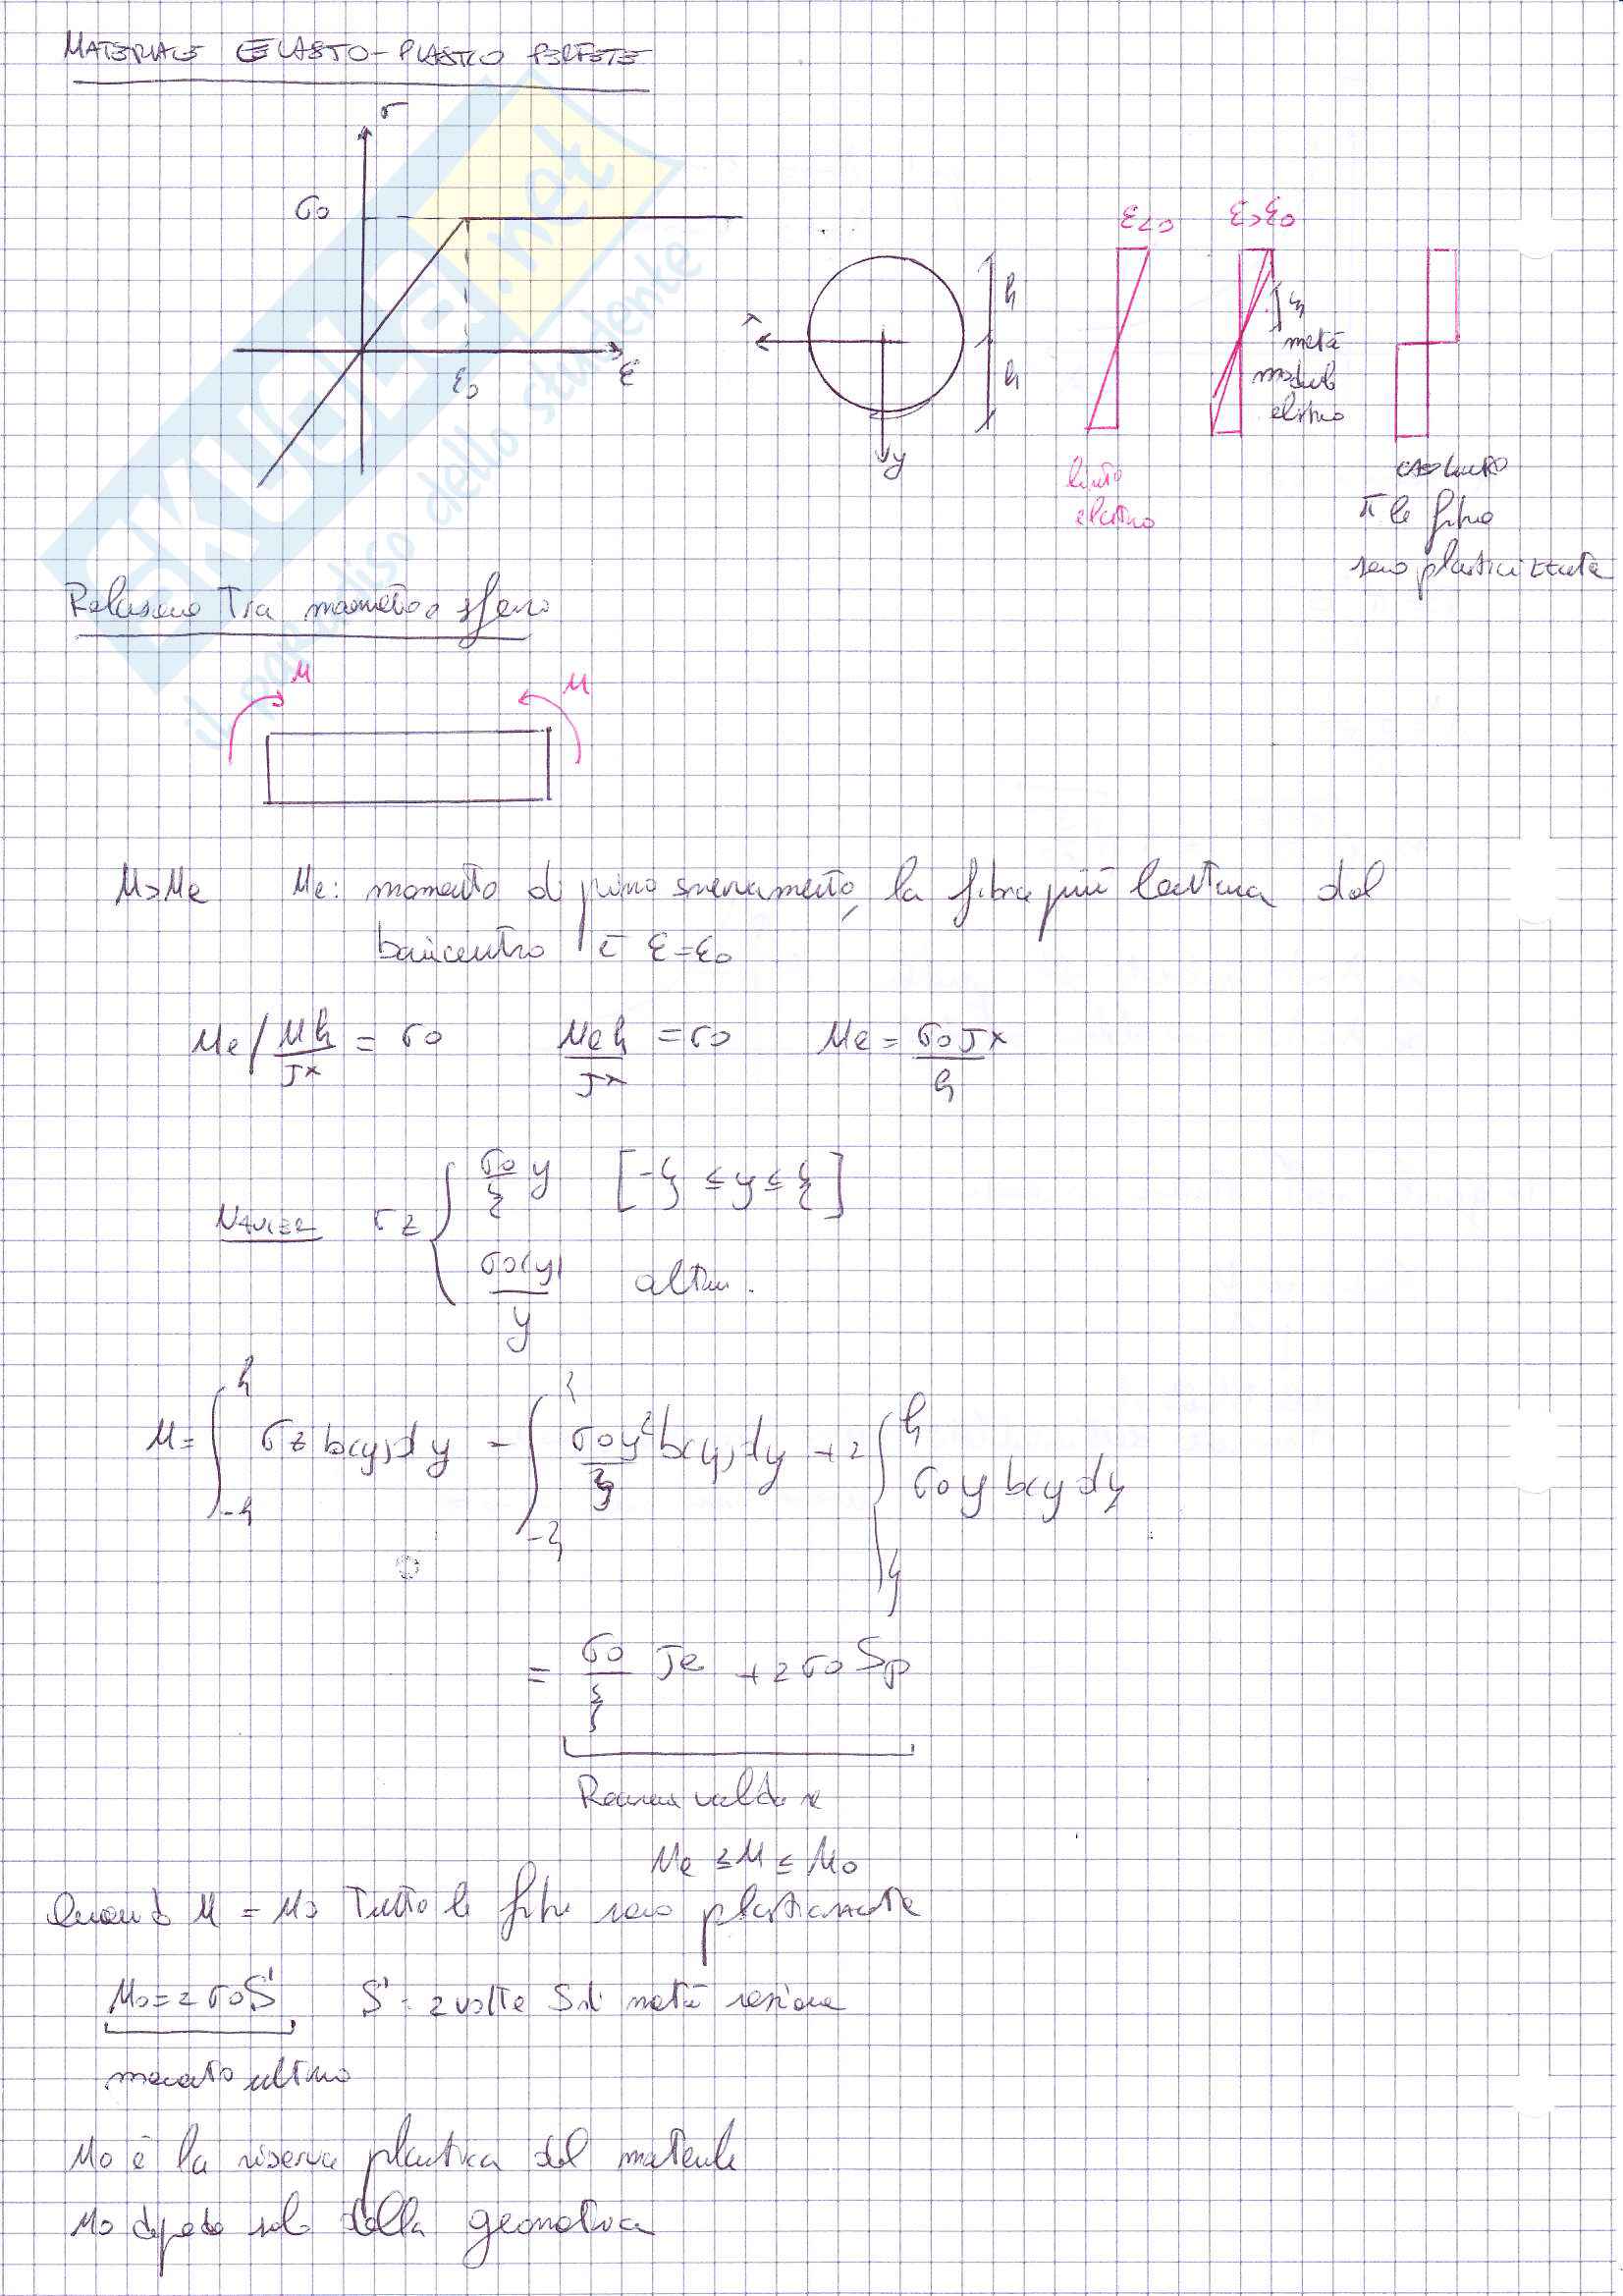 MATERIALE ELASTO-PLASTICO PERFETE
σ
σo
εo
ε
x
y
h
h
ε<o
ε>εo
ξ
metà
modulo
elastico
limite
elastico
caso limite
π le fibre
sono plasticizzate
SKUOLA.net
il paradiso dello studente
Relazione Tra momento e sforzo
M
M
M>Me Me: momento di primo snervamento, la fibra più lontana dal
baricentro è ε=εo
Me / Mh/Jx = σo Meh/Jx = σo Me = σoJx/h
NAVIER σz { σo/ξ y [-ξ ≤ y ≤ ξ]
σo|y|/y altrim.
M = ∫_{-h}^{h} σz b(y) dy = ∫_{-ξ}^{ξ} σoy²/ξ b(y) dy + 2 ∫_{ξ}^{h} σo y b(y) dy
= σo/ξ Je + 2σo Sp
valida se
Me ≤ M ≤ Mo
Quando M = Mo Tutte le fibre sono plasticizzate
Mo = 2σoS' S' = 2 volte S di metà sezione
momento ultimo
Mo è la riserva plastica del materiale
Mo dipende solo dalla geometria